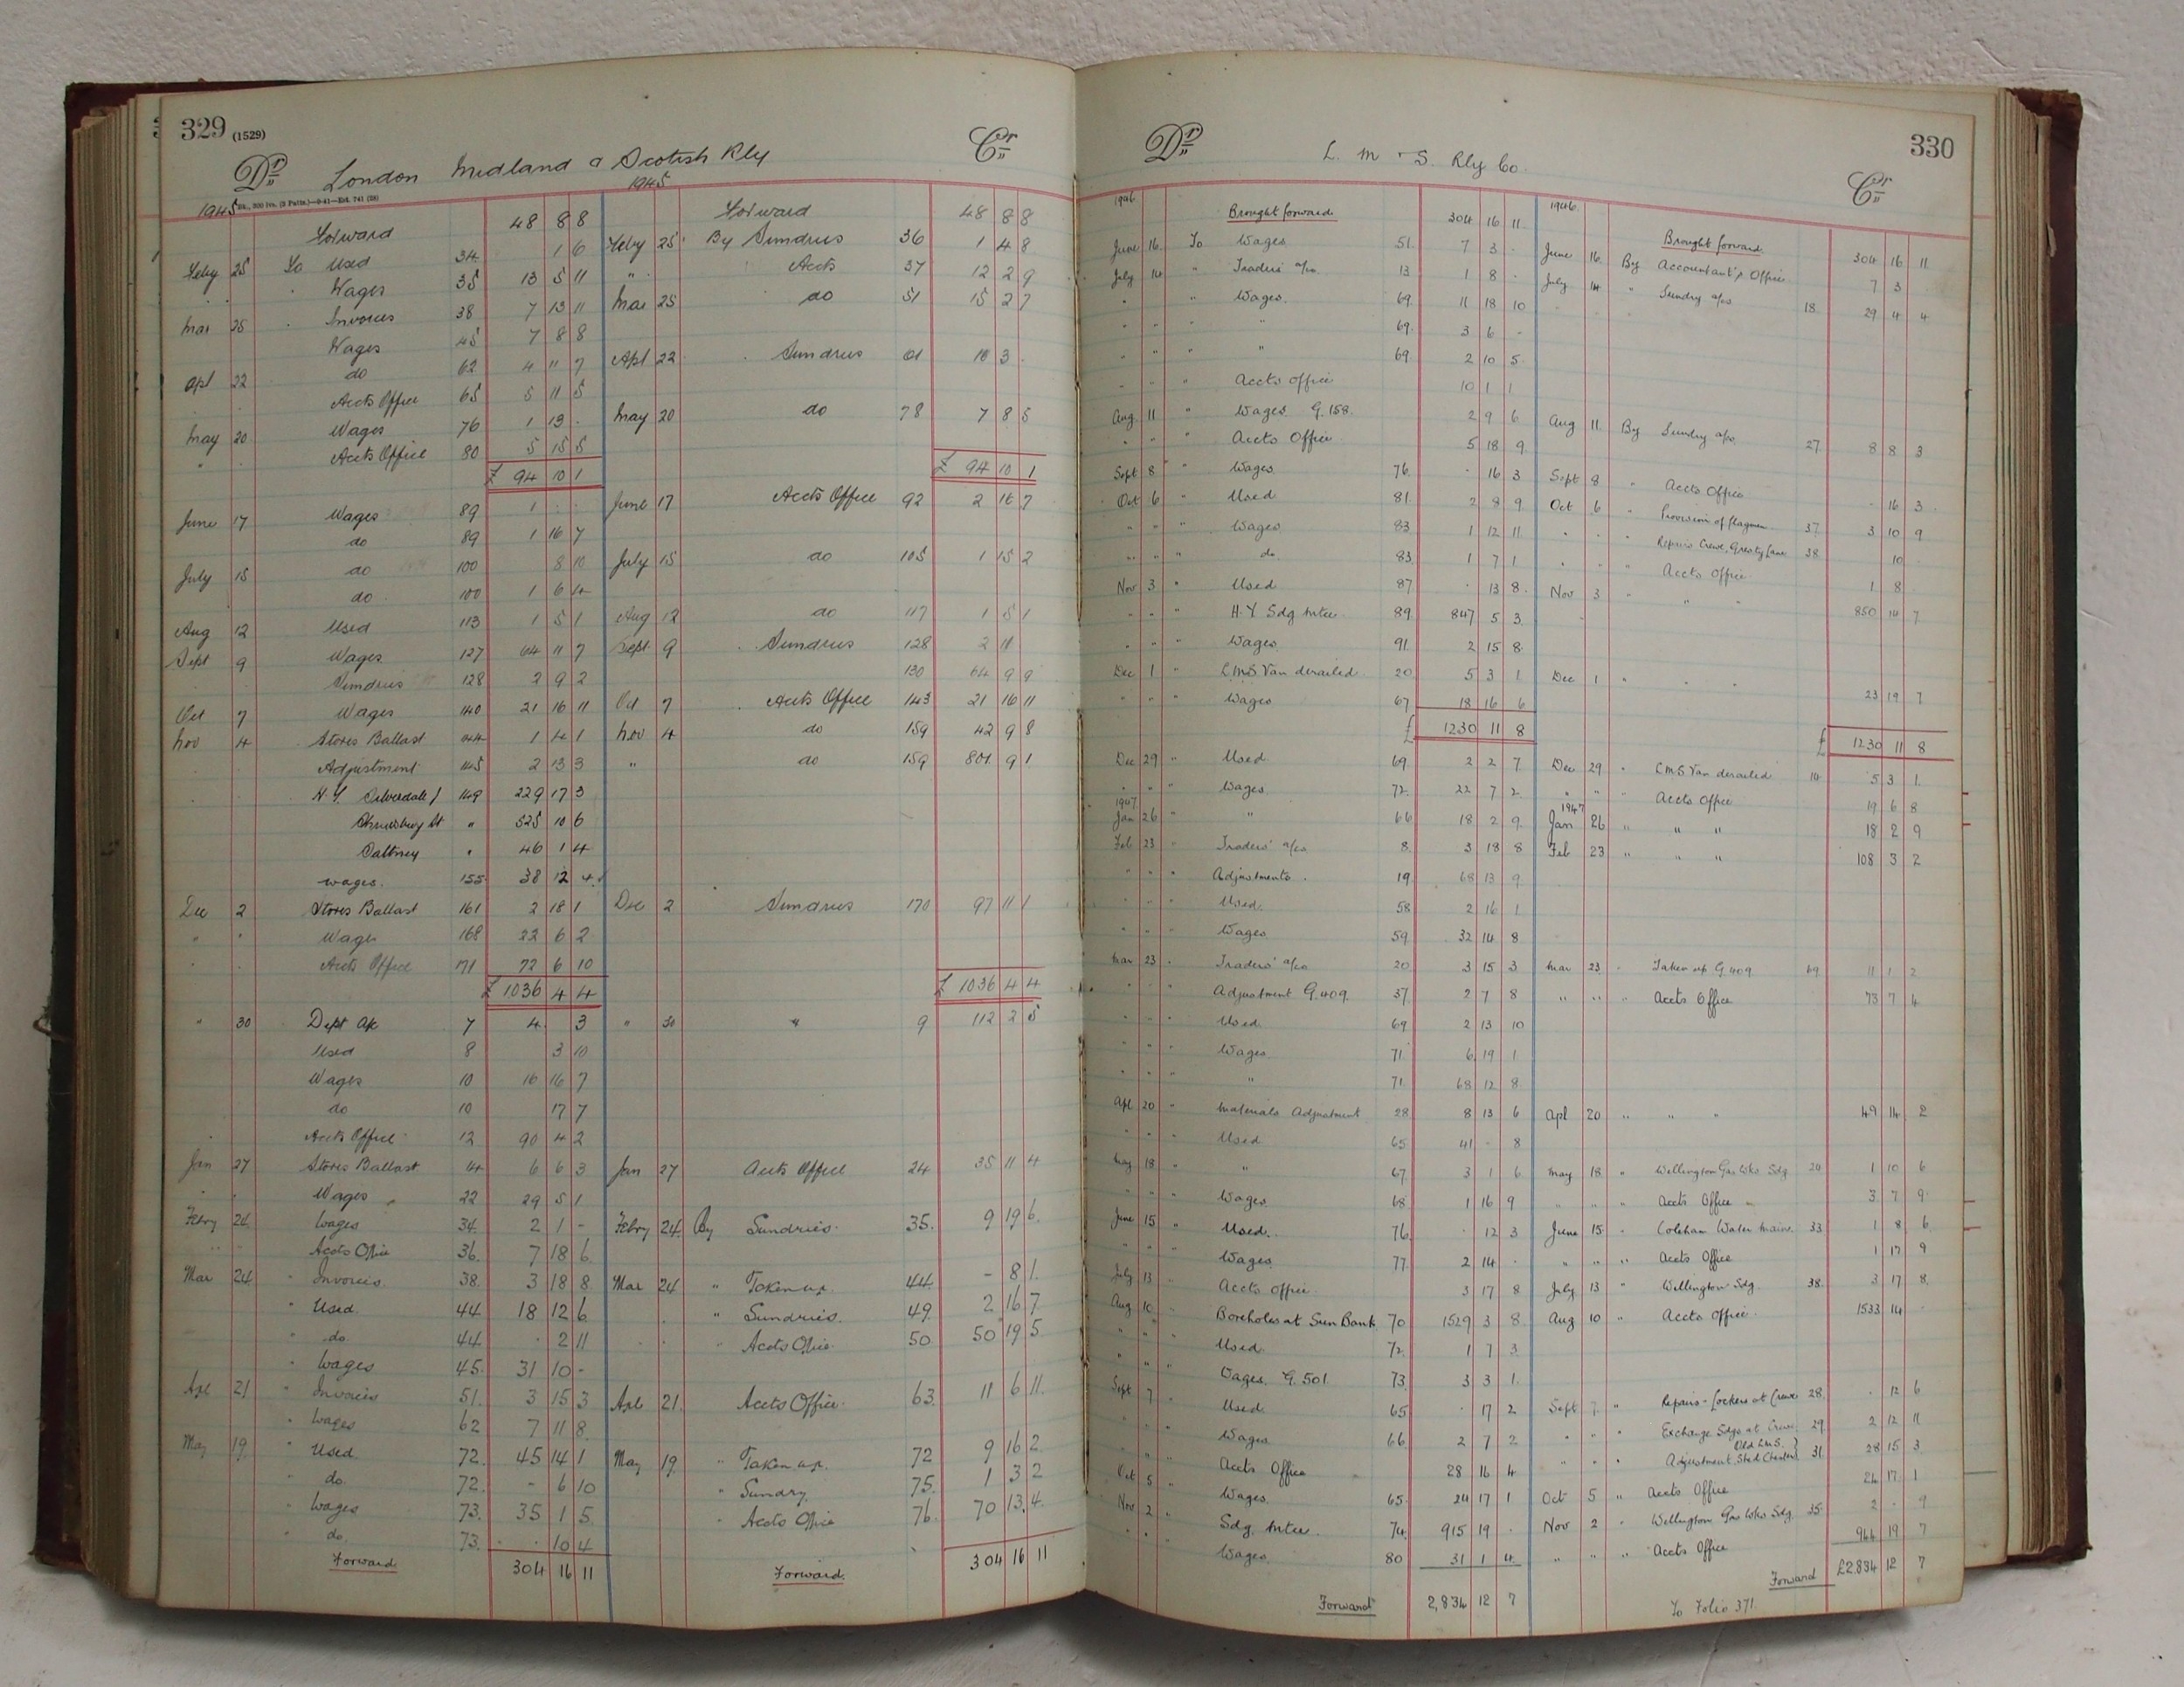 329 (1529)
Dr London Midland & Scotish Rly Cr
1945 1945
Forward 48 8 8 Forward 48 8 8
Feby 25 To Used 34 1 6 Feby 25 By Sundries 36 1 4 8
Wages 35 13 5 11 " Accts 37 12 2 9
Mar 25 Invoices 38 7 13 11 Mar 25 do 51 15 2 7
Wages 45 7 8 8
Apl 22 do 62 4 11 7 Apl 22 Sundries 61 10 3
Accts Office 65 5 11 5
May 20 Wages 76 1 13 - May 20 do 78 7 8 5
" Accts Office 80 5 15 5
£ 94 10 1 £ 94 10 1
June 17 Wages 89 1 - - June 17 Accts Office 92 2 16 7
do 89 1 16 7
July 15 do 100 8 10 July 15 do 105 1 15 2
do 100 1 6 4
Aug 12 Used 113 1 5 1 Aug 12 do 117 1 5 1
Sept 9 Wages 127 64 11 7 Sept 9 Sundries 128 2 11
Sundries 128 2 9 2 130 64 9 9
Oct 7 Wages 140 21 16 11 Oct 7 Accts Office 143 21 16 11
Nov 4 Stores Ballast 144 1 4 1 Nov 4 do 159 42 9 8
Adjustment 145 2 13 3 " do 159 801 9 1
N.Y. Silverdale 149 229 17 3
Shrewsbury St " 525 10 6
Saltney " 46 1 4
wages. 155 38 12 4
Dec 2 Stores Ballast 161 2 18 1 Dec 2 Sundries 170 97 11 1
" Wages 168 22 6 2
Accts Office 171 72 6 10
£ 1036 4 4 £ 1036 4 4
" 30 Dept a/c 7 4 3 " 30 " 9 112 2 5
Used 8 3 10
Wages 10 16 16 7
do 10 17 7
Accts Office 12 90 4 2
Jan 27 Stores Ballast 14 6 6 3 Jan 27 Accts Office 24 35 11 4
Wages 22 29 5 1
Febry 24 Wages 34. 2 1 - Febry 24 By Sundries. 35. 9 19 6.
Accts Office 36. 7 18 6.
Mar 24 " Invoices. 38. 3 18 8 Mar 24 " Taken up. 44. - 8 1.
" Used. 44 18 12 6 " Sundries. 49. 2 16 7
" do. 44. 2 11 " Accts Office 50 50 19 5
" Wages 45. 31 10 -
Apl 21 " Invoices 51. 3 15 3 Apl 21. Accts Office. 63. 11 6 11.
" Wages 62 7 11 8.
May 19. " Used 72. 45 14 1 May 19. " Taken up. 72 9 16 2
" do. 72. - 6 10 " Sundry. 75. 1 3 2
" Wages 73. 35 1 5 " Accts Office 76. 70 13 4.
" do 73. 10 4
Forward 304 16 11 Forward. 304 16 11
330
Dr L. M & S. Rly Co. Cr
1946 1946.
Brought forward 304 16 11 Brought forward 304 16 11
June 16. To Wages 51. 7 3 - June 16. By Accountant's Office 7 3
July 14 " Traders a/cs. 13 1 8 - July 14 " Sundry a/cs 18. 29 4 4
" " Wages. 69. 11 18 10
" " " 69. 3 6 -
" " " 69. 2 10 5
" " Accts Office 10 1 1
Aug 11 " Wages G.158. 2 9 6 Aug 11. By Sundry a/cs 27. 8 8 3
" " Accts Office 5 18 9
Sept 8 " Wages 76. - 16 3 Sept 8 " Accts Office - 16 3
Oct 6 " Used 81. 2 8 9 Oct 6 " Provision of flagmen 37. 3 10 9
" " Wages 83 1 12 11 " " Repairs Crewe, Gresty Lane 38 10
" " do 83. 1 7 1 " " Accts Office 1 8
Nov 3 " Used 87 - 13 8. Nov 3 " " " 850 14 7
" " H.Y Sdg Mtce 89. 847 5 3
" " Wages 91. 2 15 8
Dec 1 " LMS Van derailed. 20. 5 3 1 Dec 1 " " " 23 19 7
" " Wages 67 18 16 6
£ 1230 11 8 £ 1230 11 8
Dec 29 " Used 69 2 2 7 Dec 29 " LMS Van derailed 14 5 3 1
" " Wages 72. 22 7 2 " " Accts Office 19 6 8
1947 1947
Jan 26 " " 66 18 2 9 Jan 26 " " " 18 2 9
Feb 23 " Traders' a/cs 8. 3 18 8 Feb 23 " " " 108 3 2
" " Adjustments. 19. 68 13 9
" " Used. 58 2 16 1
" " Wages 59. 32 14 8
Mar 23 Traders' a/cs 20 3 15 3 Mar 23 Taken up G.409 69 11 1 2
" " Adjustment G.409. 37. 2 7 8 " " Accts Office 73 7 4
" " Used. 69 2 13 10
" " Wages 71. 6 19 1
" " " 71. 68 12 8
Apl 20 " Materials Adjustment 28 8 13 6 Apl 20 " " " 49 14 2
" " Used 65 41 - 8
May 18 " " 67 3 1 6 May 18 " Wellington Gas Wks Sdg 20 1 10 6
" " Wages. 68 1 16 9 " " Accts Office 3 7 9
June 15 " Used. 76. - 12 3 June 15 " Coleham Water Main. 33 1 8 6.
" " Wages 77 2 14 - " " Accts Office 1 17 9
July 13 " Accts Office. 3 17 8 July 13 " Wellington Sdg. 38. 3 17 8.
Aug 10 " Boreholes at Sun Bank 70 1529 3 8 Aug 10 " Accts Office. 1533 14
" " Used 72. 1 7 3.
" " Wages. G.501. 73. 3 3 1.
Sept 7 " Used 65 - 17 2 Sept 7 " Repairs - Lockers at Crewe 28. - 12 6
" " Wages 66. 2 7 2 " " Exchange Sdgs at Crewe. 29. 2 12 11
" " Accts Office 28 16 4 " " Adjustment Shed Chester Old LMS. 31 28 15 3
Oct 5 " Wages. 65. 24 17 1 Oct 5 " Accts Office 24 17 1
Nov 2 " Sdg. Mtce. 74. 915 19 - Nov 2 " Wellington Gas Wks Sdg. 35. 2 - 9
" " Wages 80 31 1 4 " " Accts Office 944 19 7
Forward 2,834 12 7 Forward £2834 12 7
To Folio 371